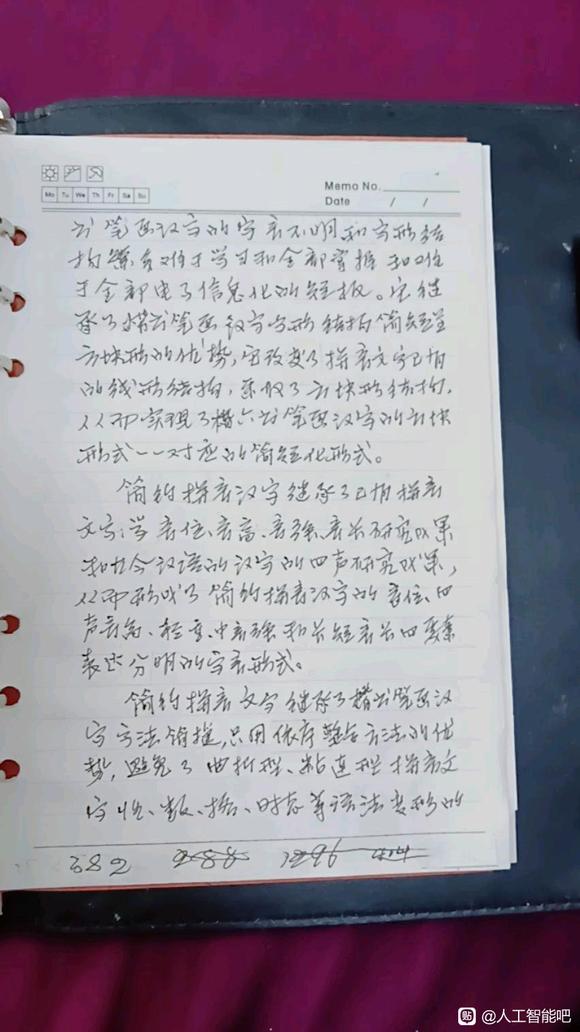 Memo No.
Date / /
Mo Tu We Th Fr Sa Su
书笔画汉字的字音不明和字形结
构繁多难于学习和全部掌握和难
于全部电子信息化的短板。它继
承了楷书笔画汉字字形结构简短型
方块形的优势,它改变了拼音文字已有
的线形结构,采取了方块形结构,
从而实现了楷书笔画汉字的方块
形式一一对应的简短化形式。
简约拼音汉字继承了已有拼音
文字学音位、音高、音强、音长研究成果
和古今汉语的汉字的四声研究成果,
从而形成了简约拼音汉字的音位、四
声音高、轻重中音强和长短音长四要素
表达分明的字音形式。
简约拼音文字继承了楷书笔画汉
字方法简捷,只用依序组合方法的优
势,避免了曲折型、粘连型拼音文
字性、数、格、时态等语法变形的
382 288 1296
贴 @人工智能吧